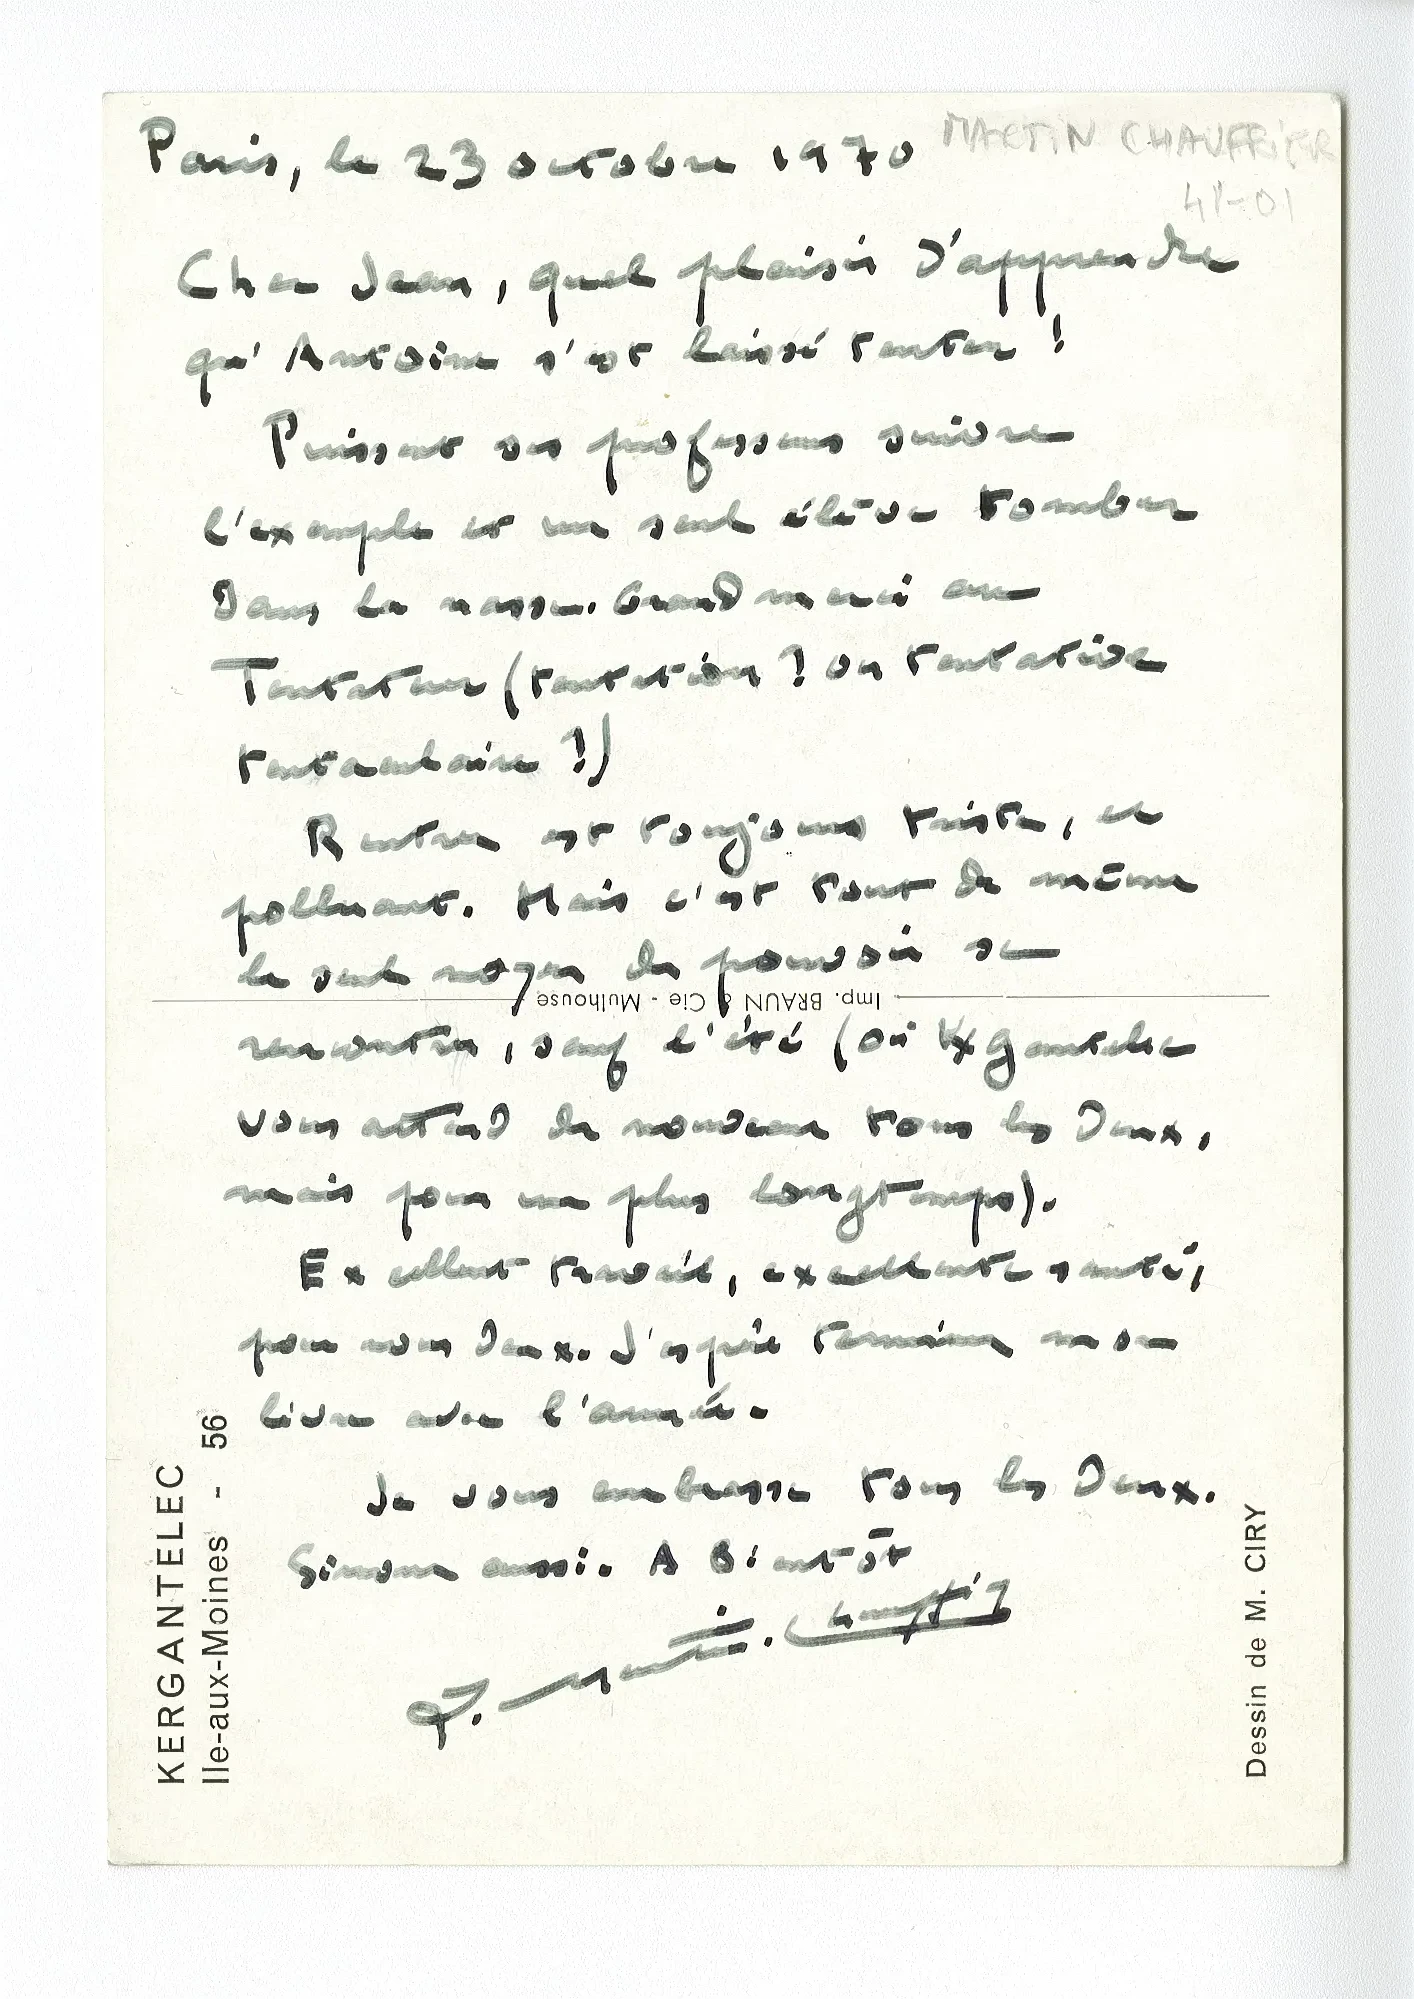 Paris, le 23 octobre 1970
MARTIN CHAUFFIER
41-01
Cher Jean, quel plaisir d'apprendre
qu'Antoine s'est laissé tenter !
Puissent ses professeurs suivre
l'exemple et un seul élève tomber
dans la nasse. Grand merci au
Tentateur (tentation ? ou tentative
tentaculaire ?)
Rentrer est toujours triste, et
polluant. Mais c'est tout de même
le seul moyen de pouvoir se
Imp. BRAUN & Cie - Mulhouse
rencontrer, sauf l'été (où Kergantelec
vous attend de nouveau tous les deux,
mais pour un plus longtemps).
Excellent travail, excellente santé,
pour vous deux. J'espère terminer mon
livre avec l'année.
Je vous embrasse tous les deux.
Simone aussi. A Bientôt
L. Martin-Chauffier
KERGANTELEC
Ile-aux-Moines - 56
Dessin de M. CIRY